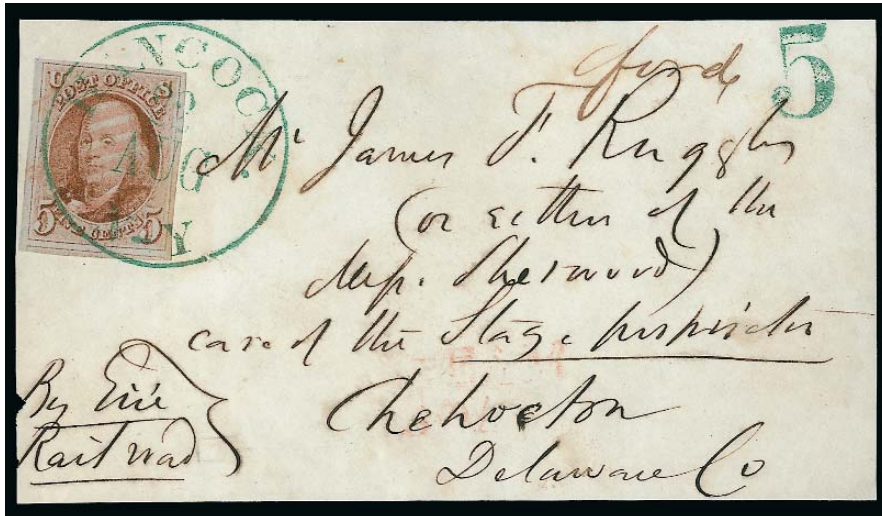 HANCOCK.
8
AUG
N.Y
U S
POST OFFICE
5 FIVE CENTS 5
5
forwd
Mr James F. Ruggles
(or either of the
Messrs. Sherwood)
care of the Stage proprietor
Chehocton
Delaware Co
By Erie
Railroad